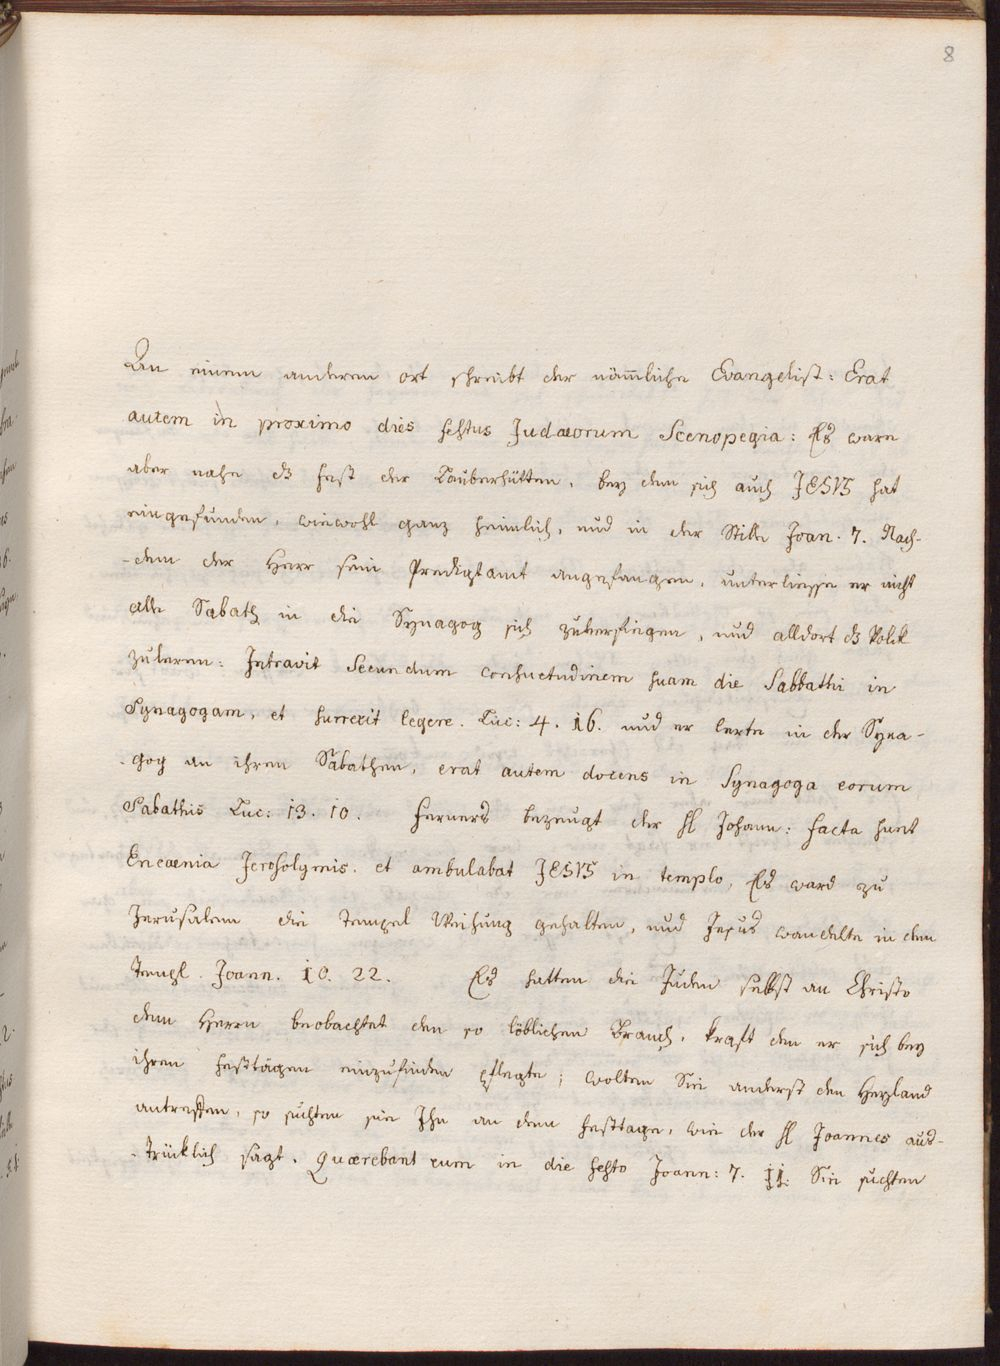 8
An einem anderem ort schreibt der nämliche Evangelist: Erat
autem in proximo dies festus Judæorum Scenopegia: Es ware
aber nahe dz fest der Lauberhütten, bey dem sich auch JESVS hat
eingefunden, wiewohl ganz heimlich, und in der Stille Joan. 7. Nach-
-dem der Herr sein Predigtamt angefangen, unterliesse er nicht
alle Sabath in die Synagog sich zuverfügen, und alldort dz Volck
zulerren: Intravit Secundum consuetudinem suam die Sabbathi in
Synagogam, et surrexit legere. Luc: 4. 16. und er lerte in der Syna-
-gog an ihren Sabathen, erat autem docens in Synagoga eorum
Sabathis Luc: 13. 10. Ferners bezeugt der hl Johann: facta sunt
Encænia Jerosolymis. et ambulabat JESVS in templo, Es ward zu
Jerusalem die Tempel Weihung gehalten, und Jesus wandelte in dem
Templ. Joann. 10. 22. Es hatten die Juden selbst an Christo
dem Herrn beobachtet den so löblichen Brauch, krafft den er sich bey
ihren festtägen einzufinden pflegte; wolten Sie anderst den Heyland
antreffen, so suchten sie Ihn an dem festtage, wie der hl Joannes aus-
-trücklich sagt. Quærebant eum in die festo Joann: 7. 11. Sie suchten